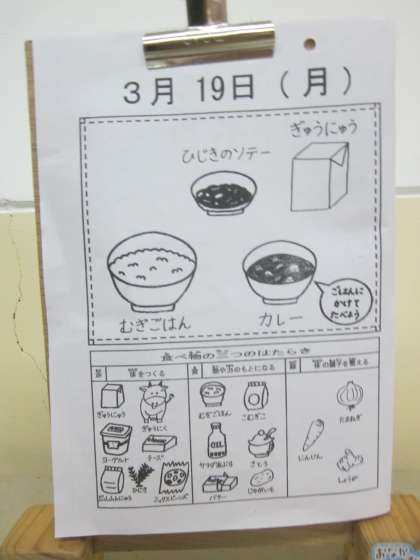 3月 19日（月）
ぎゅうにゅう
ひじきのソテー
むぎごはん
カレー
ごはんに
かけて
たべよう
食べ物の三つのはたらき
をつくる
のもとになる
の調子を整える
ぎゅうにゅう
ぎゅうにく
ヨーグルト
チーズ
だっしふんにゅう
ひじき
ミックスビーンズ
むぎごはん
こむぎこ
サラダあぶら
さとう
バター
じゃがいも
たまねぎ
にんじん
しょうが